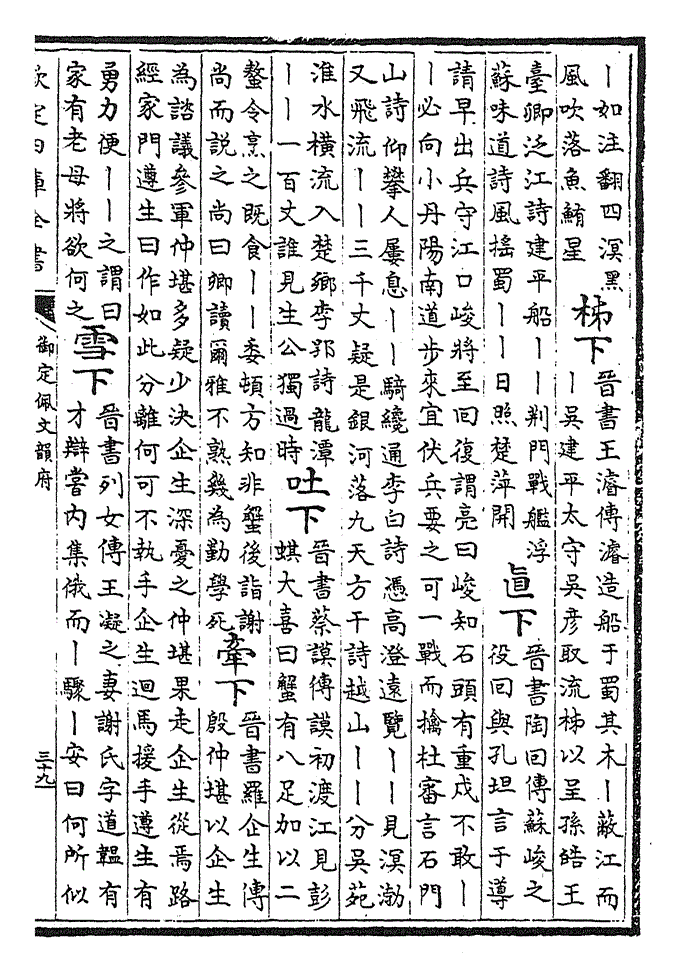 丨如注翻四溟黑
風吹落魚鮪星
柹下
晉書王濬傳濬造船于蜀其木丨蔽江而
丨吳建平太守吳彥取流柹以呈孫皓王
臺卿泛江詩建平船丨丨荆門戰艦浮
蘇味道詩風摇蜀丨丨日照楚萍開
直下
晉書陶回傳蘇峻之
役回與孔坦言于導
請早出兵守江口峻將至回復謂亮曰峻知石頭有重戍不敢丨
丨必向小丹陽南道步來宜伏兵要之可一戰而擒杜審言石門
山詩仰攀人屢息丨丨騎纔通李白詩憑高澄遠覽丨丨見溟渤
又飛流丨丨三千丈疑是銀河落九天方干詩越山丨丨分吳苑
淮水橫流入楚鄉李郢詩龍潭
丨丨一百丈誰見生公獨過時
吐下
晉書蔡謨傳謨初渡江見彭
蜞大喜曰蟹有八足加以二
螯令烹之既食丨丨委頓方知非蟹後詣謝
尚而說之尚曰卿讀爾雅不熟幾為勤學死
牽下
晉書羅企生傳
殷仲堪以企生
為諮議參軍仲堪多疑少決企生深憂之仲堪果走企生從焉路
經家門遵生曰作如此分離何可不執手企生迴馬援手遵生有
勇力便丨丨之謂曰
家有老母將欲何之
雪下
晉書列女傳王凝之妻謝氏字道韞有
才辯嘗内集俄而丨驟丨安曰何所似
欽定四庫全書
御定佩文韻府
三十九